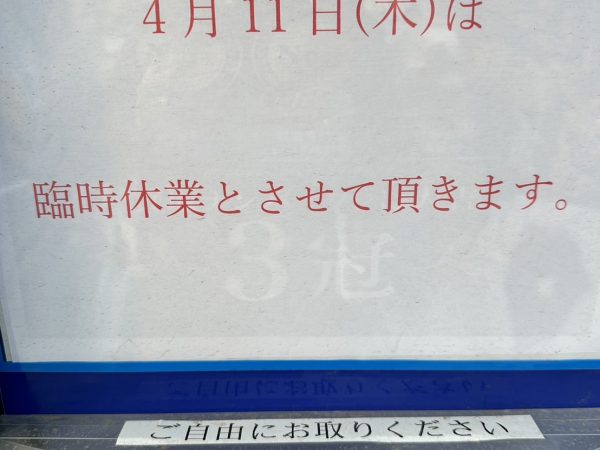 4月11日(木)は
臨時休業とさせて頂きます。
ご自由にお取りください